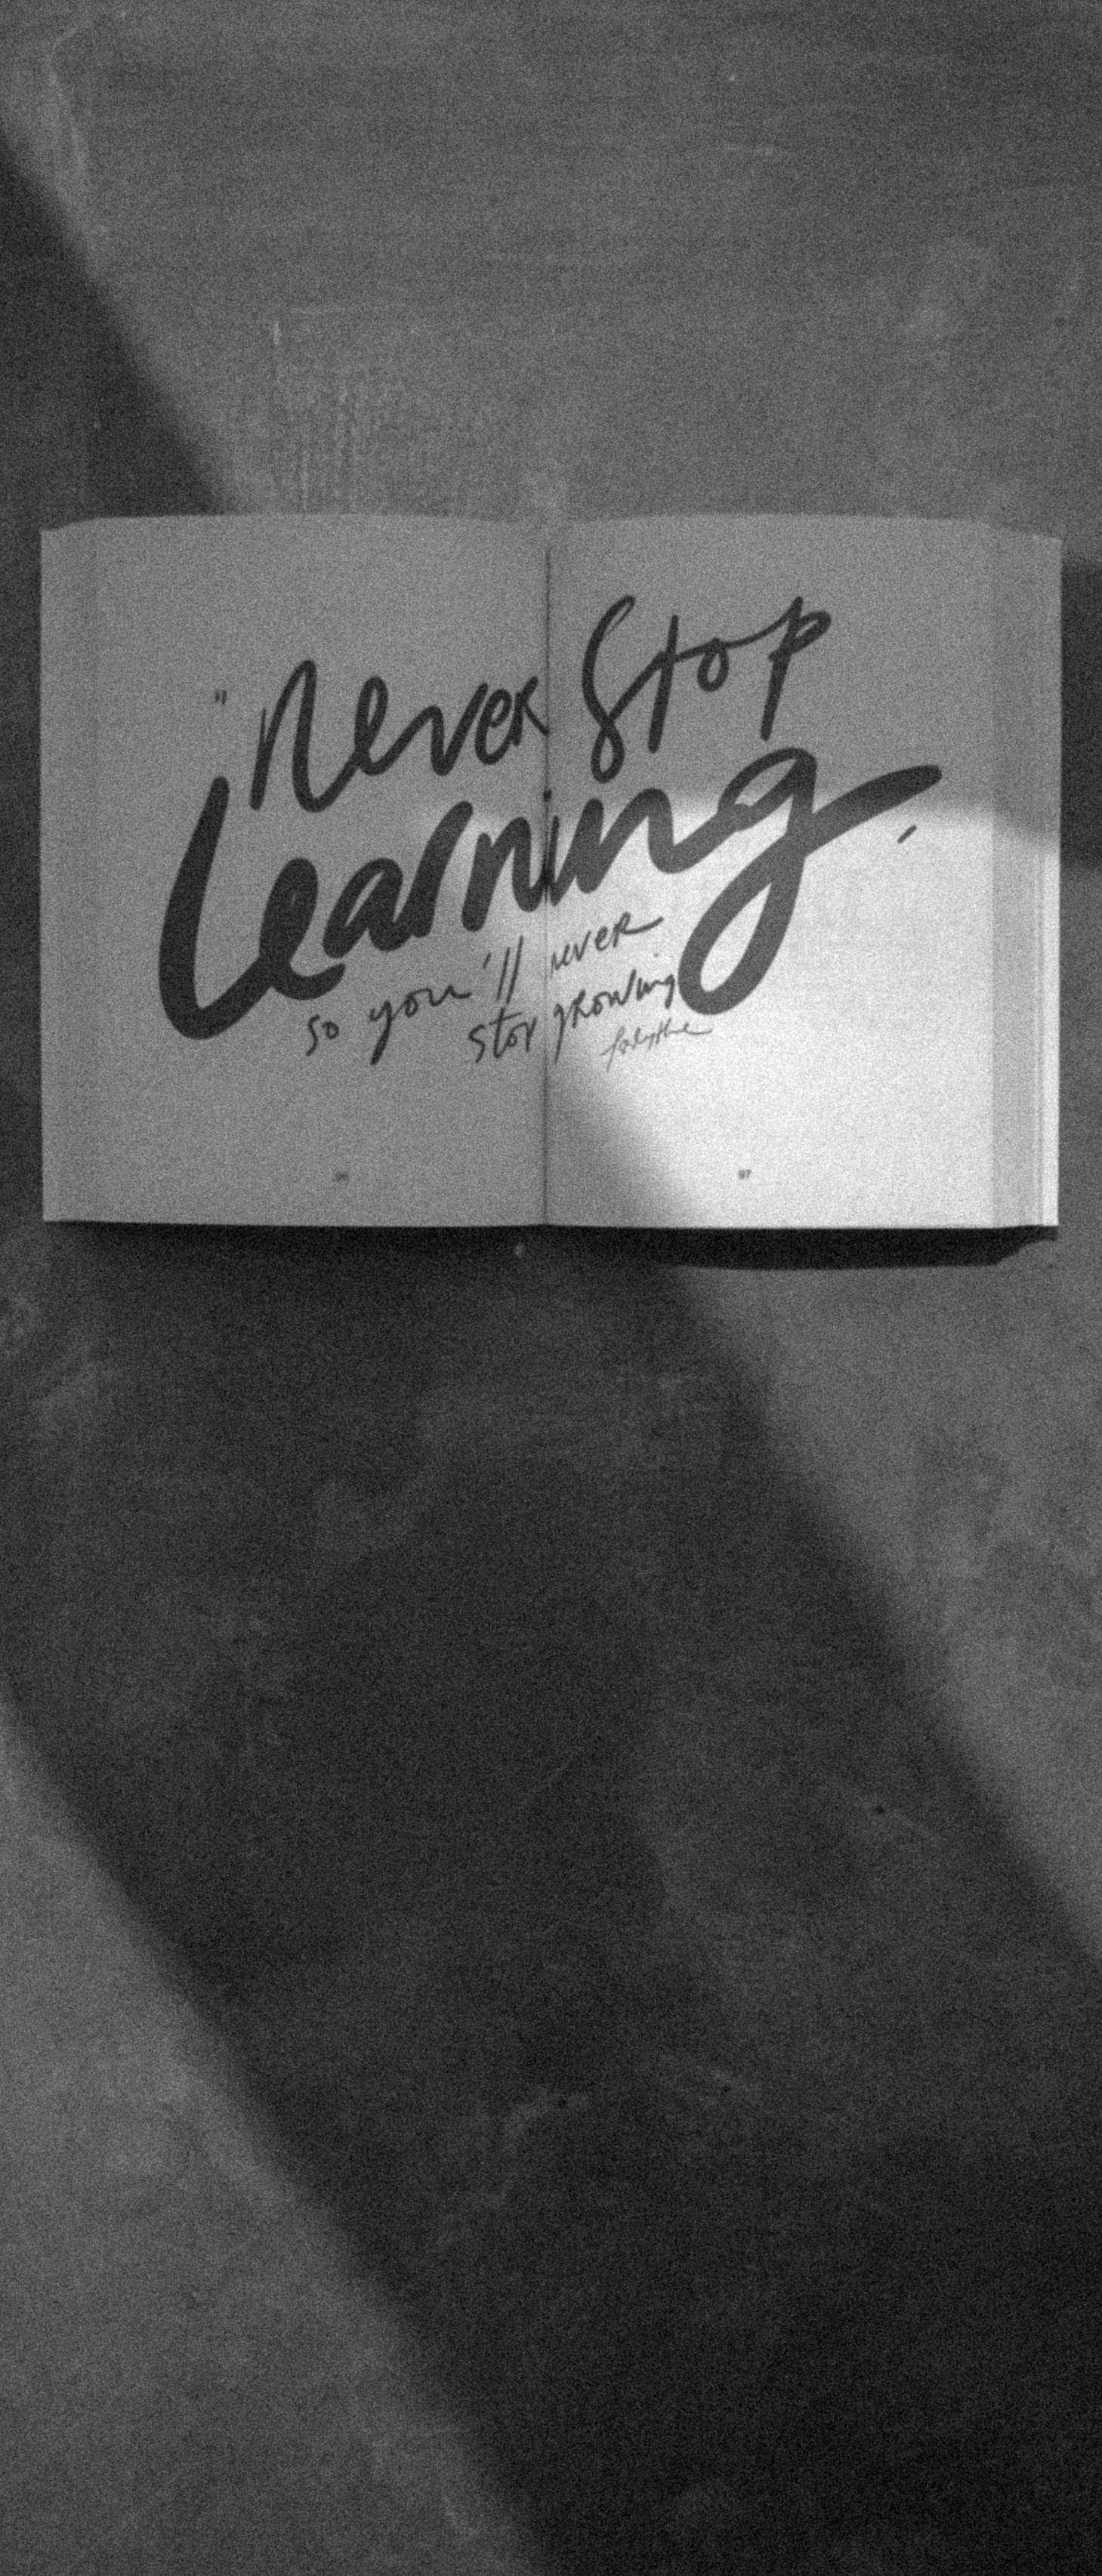 "Never Stop
Learning,
so you'll never
stop growing
97